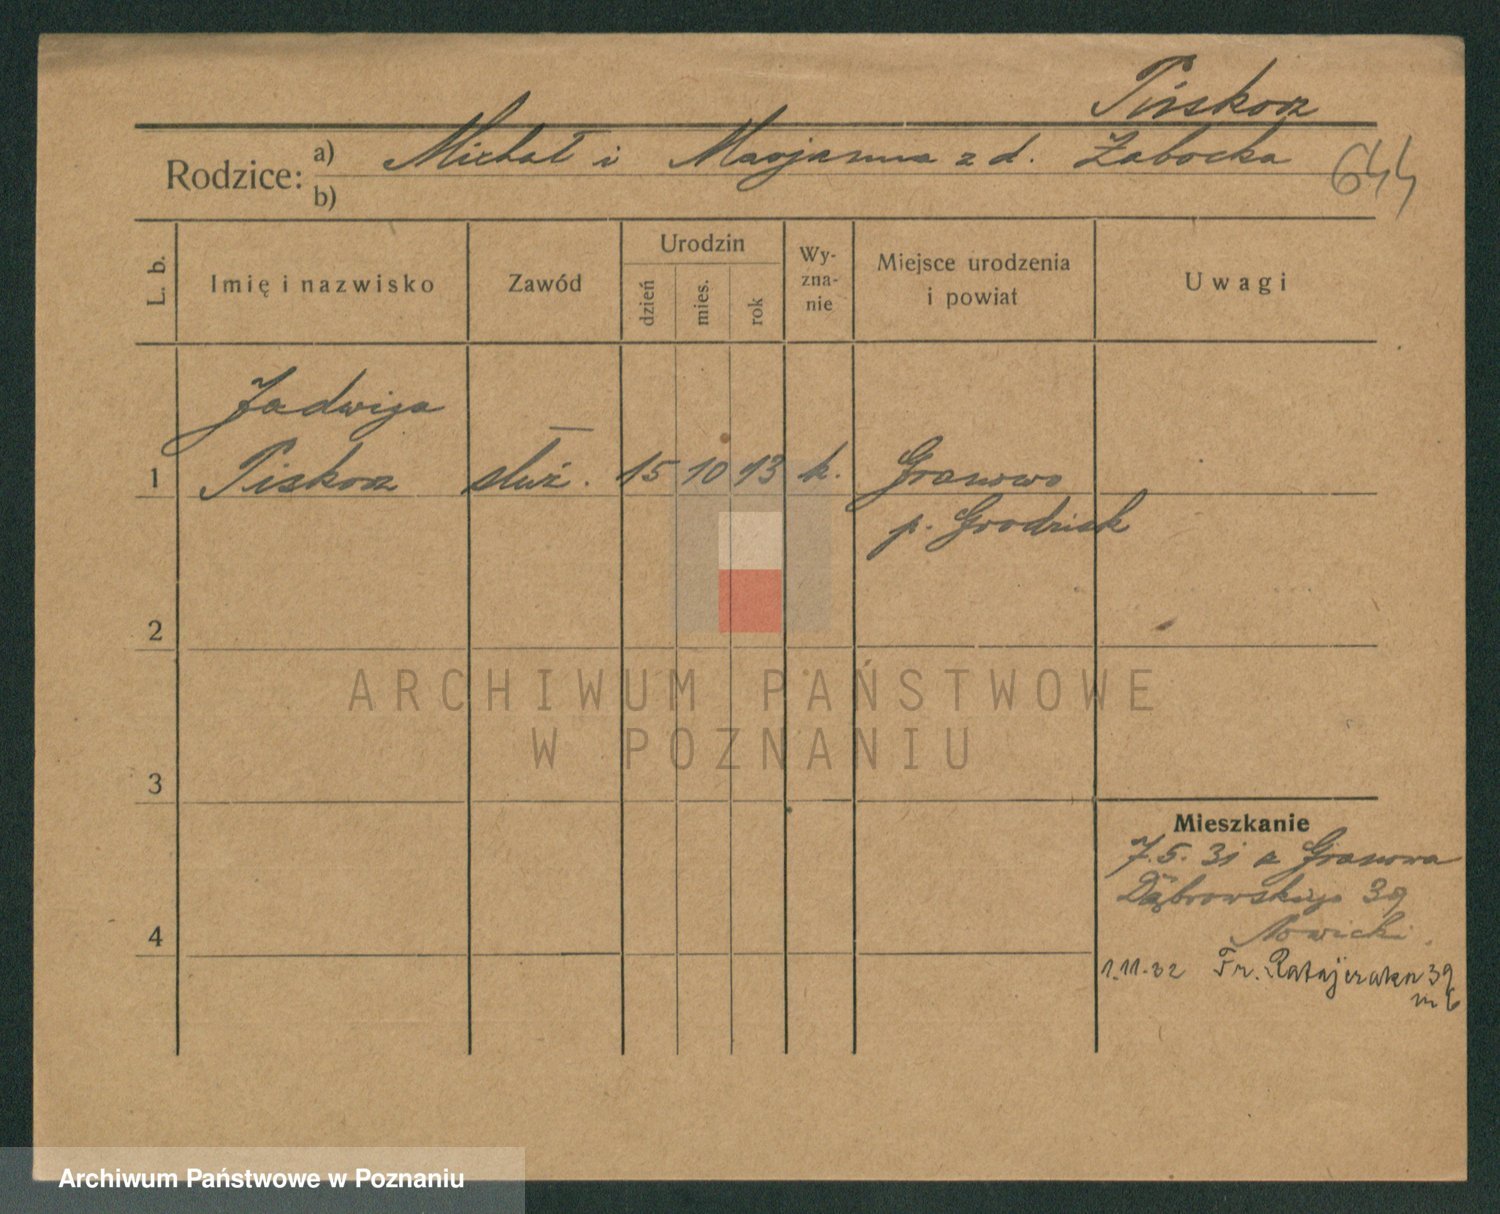 Piskorz
Rodzice: a) Michał i Marjanna z d. Żabocka
b)
644
L. b.
Imię i nazwisko
Zawód
Urodzin
dzień
mies.
rok
Wy-
zna-
nie
Miejsce urodzenia
i powiat
Uwagi
Jadwiga
1 Piskorz służ. 15 10 13 k. Granowo
p. Grodzisk
2
ARCHIWUM PAŃSTWOWE
W POZNANIU
3
Mieszkanie
7.5.31 z Granowa
Dąbrowskiego 39
Nowicki
4
1.11.32 Fr. Ratajczaka 39
m 6
Archiwum Państwowe w Poznaniu